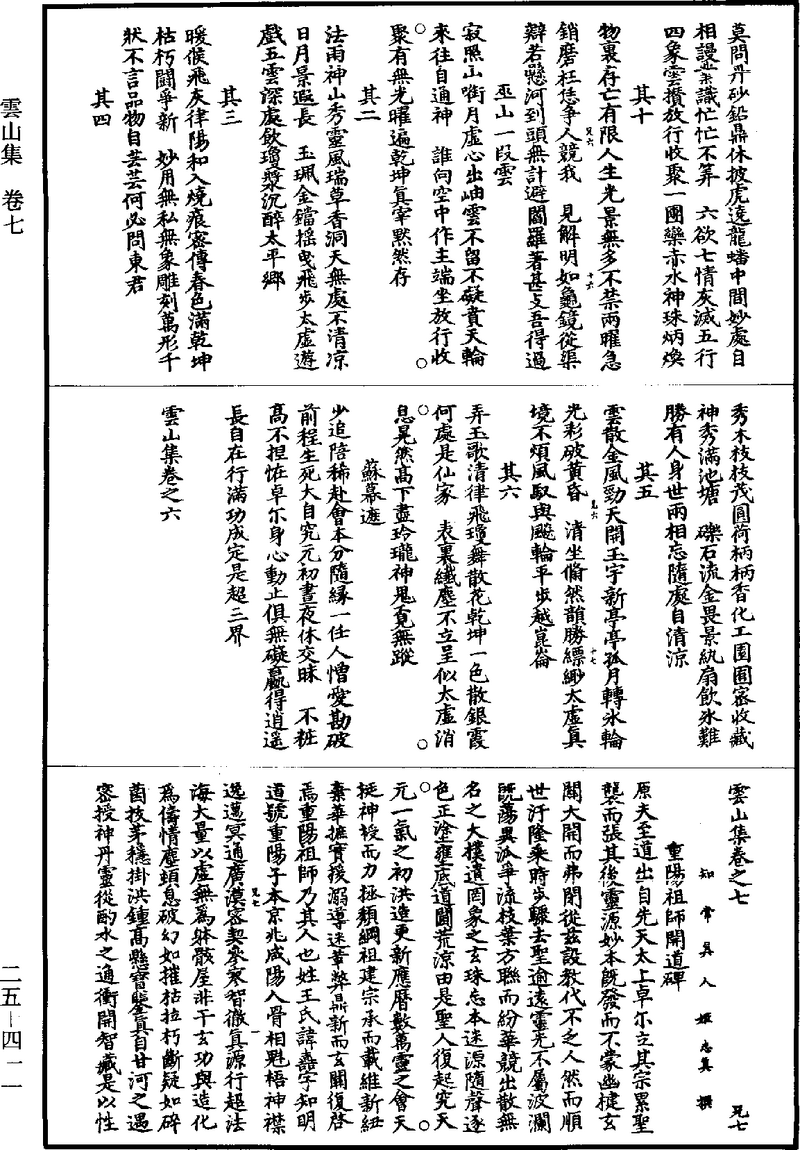 雲山集 卷七
莫問丹砂鉛鼎休披虎遶龍蟠中間妙處自
相謾業識忙忙不筭 六欲七情灰滅五行
四象雲攢放行收聚一團欒赤水神珠炳煥
其十
物裏存亡有限人生光景無多不禁兩曜急
銷磨枉恁爭人競我 見解明如龜鏡從渠
辯若懸河到頭無計避閻羅著甚支吾得過
巫山一段雲
寂照山啣月虛心出岫雲不留不礙貫天輪
來往自通神 誰向空中作主端坐放行收
聚有無光曜遍乾坤真宰默然存
其二
法雨神山秀靈風瑞草香洞天無處不清凉
日月景遐長 玉珮金鐺搖曳飛步太虛遊
戲五雲深處飲瓊漿沉醉太平鄉
其三
暖候飛灰律陽和入燒痕密傳春色滿乾坤
枯朽鬪爭新 妙用無私無象雕刻萬形千
狀不言品物自芸芸何必問東君
其四
秀木枝枝茂圓荷柄柄香化工園圃密收藏
神秀滿池塘 礫石流金畏景紈扇飲氷難
勝有人身世兩相忘隨處自清凉
其五
雲散金風勁天開玉宇新亭亭孤月轉氷輪
光彩破黃昏 清坐翛然韻勝縹緲太虛真
境不煩風馭與飈輪平步越崑崙
其六
弄玉歌清律飛瓊舞散花乾坤一色散銀霞
何處是仙家 表裏纖塵不立呈似太虛消
息晃然高下盡玲瓏神鬼覓無蹤
蘇幕遮
少追陪稀赴會本分隨緣一任人憎愛勘破
前程生死大自究元初晝夜休交昧 不粧
高不捏恠卓尓身心動止俱無礙贏得逍遥
長自在行滿功成定是超三界
雲山集卷之六
雲山集卷之七 兄七
知常真人姬志真撰
重陽祖師開道碑
原夫至道出自先天太上卓尓立其宗累聖
襲而張其後靈源妙本旣發而不蒙幽楗玄
關大開而弗閉從茲設教代不乏人然而順
世汙隆乘時步驟去聖逾遠靈光不屬波瀾
旣蕩異派爭流枝葉方聯而紛華競出散無
名之大樸遺罔象之玄珠忘本迷源隨聲逐
色正塗壅底道閫荒涼由是聖人復起究天
元一氣之初洪造更新應曆數萬靈之會天
挺神授而力拯頹綱祖建宗承而載維新紐
棄華摭實援溺導迷革弊鼎新而玄關復啓
焉重陽祖師乃其人也姓王氏諱嚞字知明
道號重陽子本京兆咸陽人骨相魁梧神襟
逸邁冥通廣漠密契參寥智徹真源行超法
海大量以虛無爲躰骸屋非干玄功與造化
爲儔情塵頓息破幻如摧枯拉朽斷疑如碎
菌拔茅穩掛洪鍾高懸寶鑒真自甘河之遇
密授神丹靈從酌水之逋衝開智藏是以性
二五-四一一